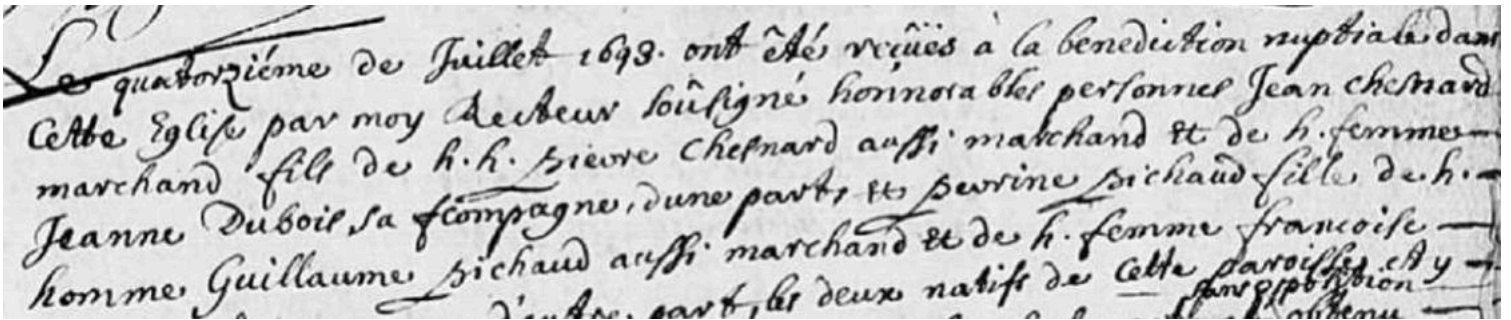 Le quatorziéme de Juillet 1698. ont êté reçûës à la benediction nuptiale dans
Cette Eglise par moy Recteur soûsigné honnorables personnes Jean Chesnard
marchand fils de h. h. Pierre Chesnard aussi marchand et de h. femme
Jeanne Dubois, sa compagne, dune part, et Perrine Pichaud fille de h.
homme Guillaume Pichaud aussi marchand et de h. femme francoise
d'autre part, les deux natifs de Cette paroisse, et y
sans opposition
obtenu